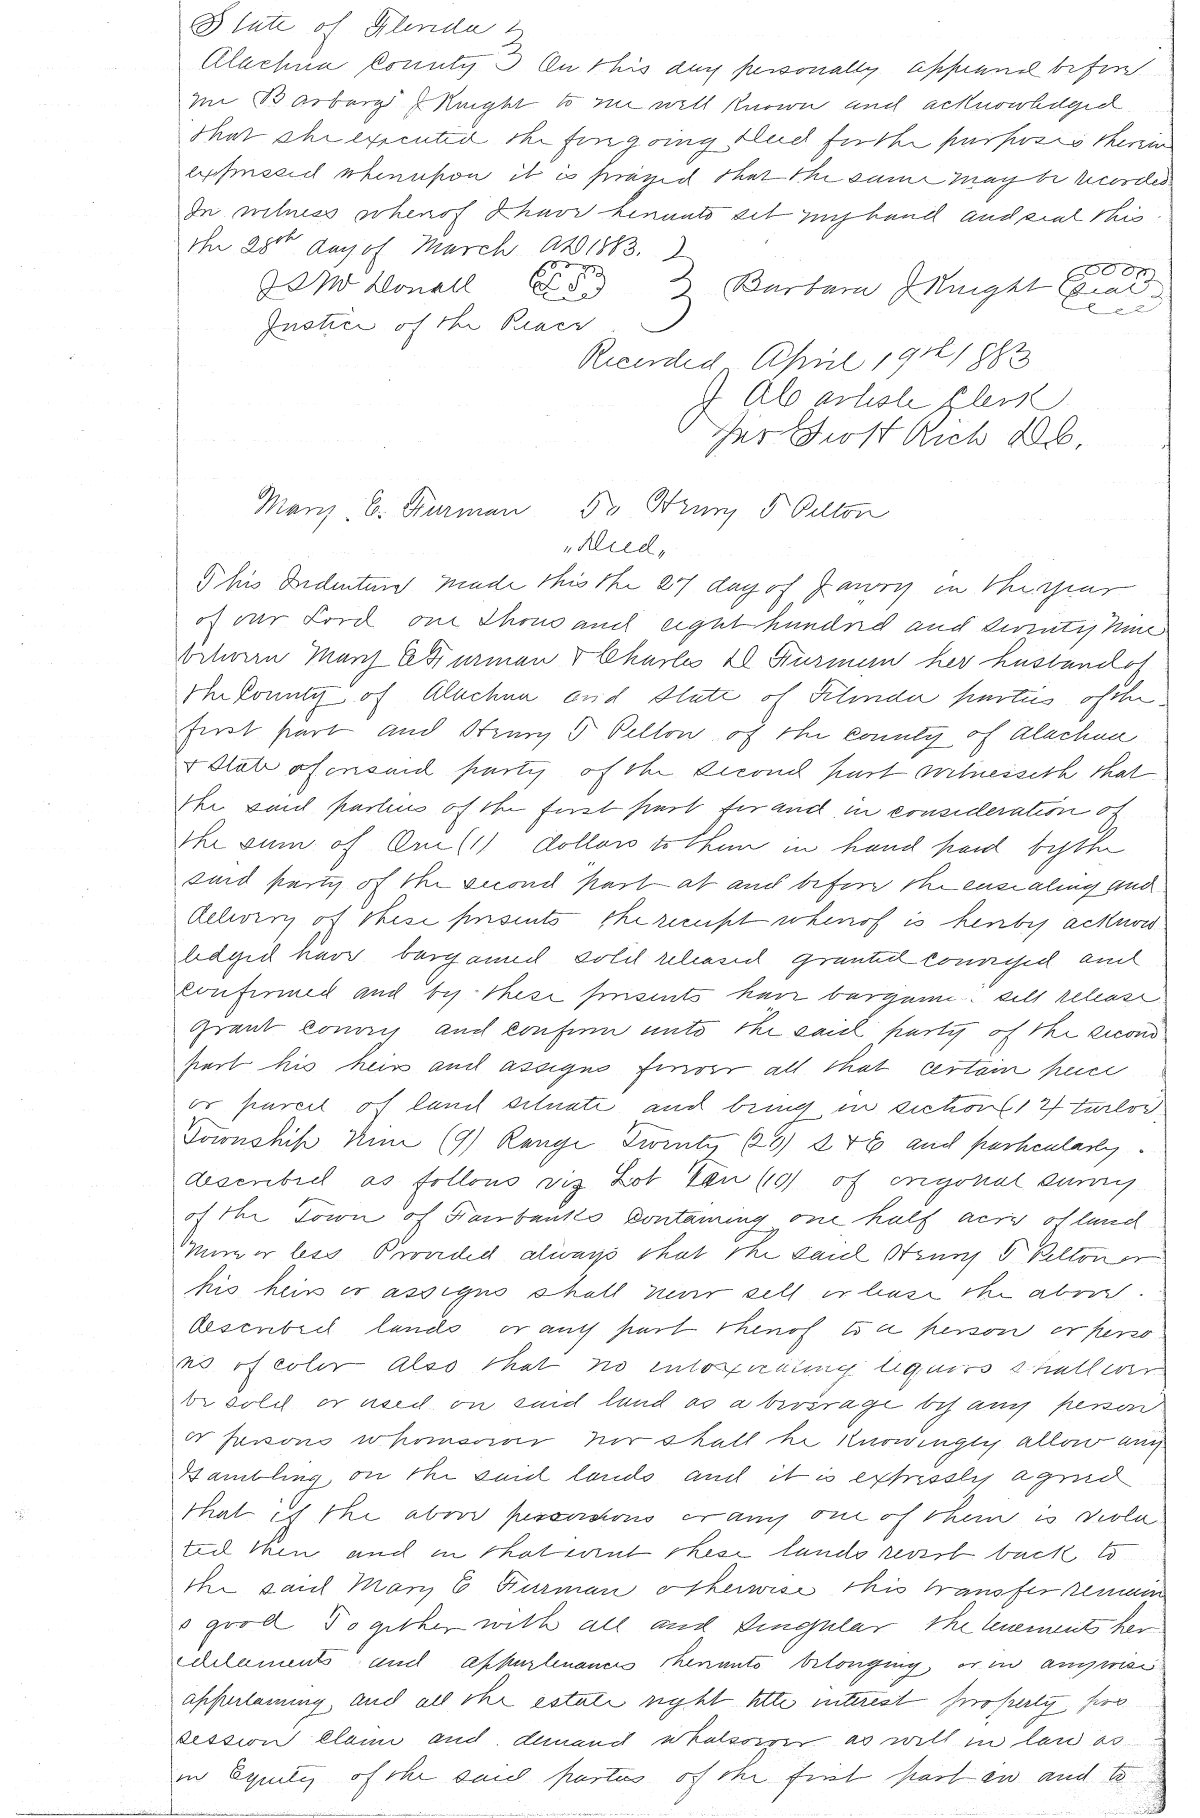 State of Florida
Alachua County On this day personally appeared before
me Barbary J Knight to me well known and acknowledged
that she executed the foregoing deed for the purposes therein
expressed whereupon it is prayed that the same may be recorded
In witness whereof I have hereunto set my hand and seal this
the 28th day of March AD 1883.
Donall LS Barbara J Knight Seal
Justice of the Peace
Recorded April 19th 1883
J A Carlisle Clerk
Per Scott Rich D.C.
Mary E. Furman To Henry T Pelton
"Deed"
This Indenture made this the 27 day of Janury in the year
of our Lord one thousand eight hundred and seventy nine
between Mary E Furman & Charles D Furman her husband of
the County of Alachua and State of Florida parties of the
first part and Henry T Pelton of the county of Alachua
& State aforesaid party of the second part witnesseth that
the said parties of the first part for and in consideration of
the sum of One (1) dollars to them in hand paid by the
said party of the second part at and before the ensealing and
delivery of these presents the receipt whereof is hereby acknow
ledged have bargained sold released granted conveyed and
confirmed and by these presents have bargain sell release
grant convey and confirm unto the said party of the second
part his heirs and assigns forever all that certain peice
or parcel of land situate and being in section (12) twelve
Township Nine (9) Range Twenty (20) S & E and particularly
described as follows viz Lot Ten (10) of origonal survey
of the Town of Fairbanks containing one half acre of land
more or less Provided always that the said Henry T Pelton or
his heirs or assigns shall never sell or lease the above
described lands or any part thereof to a person or perso
ns of color also that no intoxicating liquors shall ever
be sold or used on said land as a beverage by any person
or persons whomsoever nor shall he knowingly allow any
Gambling on the said lands and it is expressly agreed
that if the above or any one of them is viola
ted then and in that event these lands revert back to
the said Mary E Furman otherwise this transfer remain
s good Together with all and singular the tenements her
editaments and appurtenances hereunto belonging or in anywise
appertaining and all the estate right title interest property pos
session claim and demand whatsoever as well in law as
in Equity of the said parties of the first part in and to